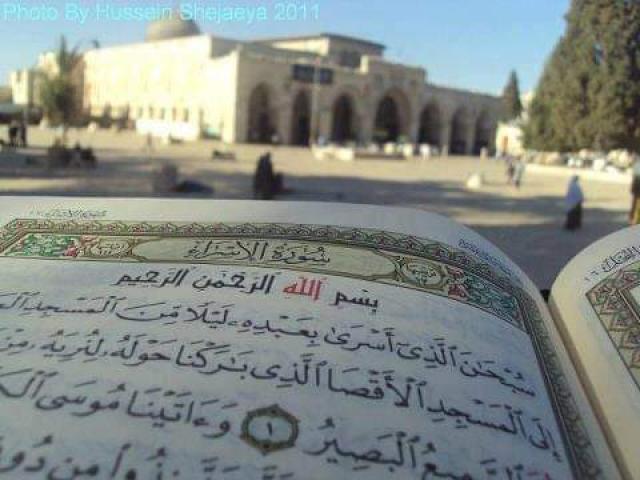 Photo By Hussein Shejaeya 2011
سُورَةُ الإِسْرَاءِ
بِسْمِ اللَّهِ الرَّحْمَٰنِ الرَّحِيمِ
سُبْحَٰنَ ٱلَّذِىٓ أَسْرَىٰ بِعَبْدِهِۦ لَيْلًا مِّنَ ٱلْمَسْجِدِ
إِلَى ٱلْمَسْجِدِ ٱلْأَقْصَا ٱلَّذِى بَٰرَكْنَا حَوْلَهُۥ لِنُرِيَهُۥ مِنْ
ٱلسَّمِيعُ ٱلْبَصِيرُ ١ وَءَاتَيْنَا مُوسَى
مِن